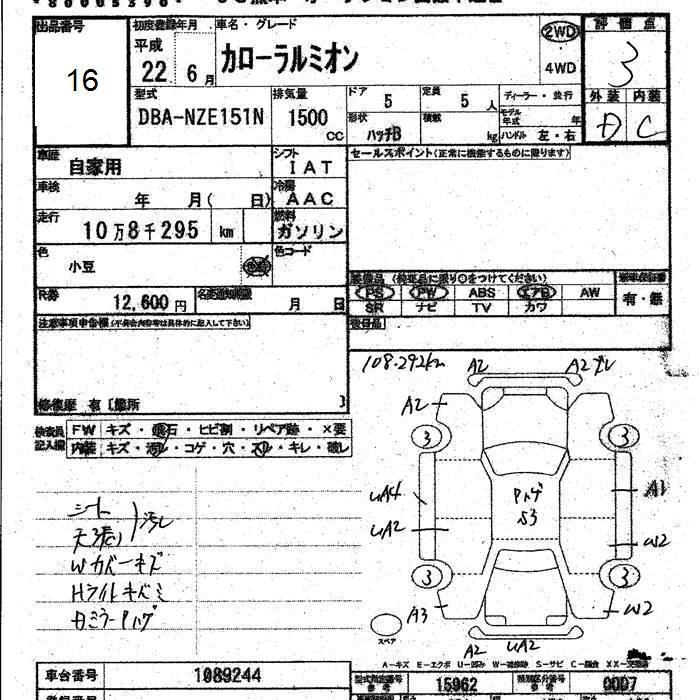 出品番号
16
初度登録年月
平成
22年 6月
車名・グレード
カローラルミオン
2WD
4WD
評価点
3
外装 内装
D C
型式
DBA-NZE151N
排気量
1500
CC
ドア
5
定員
5人
形状
ハッチB
積数
kg
ディーラー・並行
モデル年式 年
ハンドル 左・右
車歴
自家用
シフト
IAT
セールスポイント(正常に機能するものに限ります)
車検
年 月( 日)
冷房
AAC
走行
10万8千295 km
燃料
ガソリン
色
小豆
色コード
R券
12,600円
名変通知期限
月 日
装備品 (検査員に限り〇をつけてください)
PS PW ABS エアB AW
SR ナビ TV カワ
有・無
後日品
注意事項申告欄(不具合内容等は具体的に記入して下さい)
修復歴 有 [箇所 ]
検査員記入欄
FW キズ・飛石・ヒビ割・リペア跡・×要
内装 キズ・汚れ・コゲ・穴・スレ・キレ・破レ
シート
天張り 汚レ
Wカバーキズ
Hライトキバミ
108.292km
A2 A2
A2
3 3
UA4 A1
Pハゲ
S3
UA2 W2
3 3
A3 W2
A2 UA2
スペア
A-キズ E-エクボ U-凹み W-補修跡 S-サビ C-腐食 XX-交換済
車台番号
1089244
型式指定番号
参考
15962
類別区分番号
参考
0007